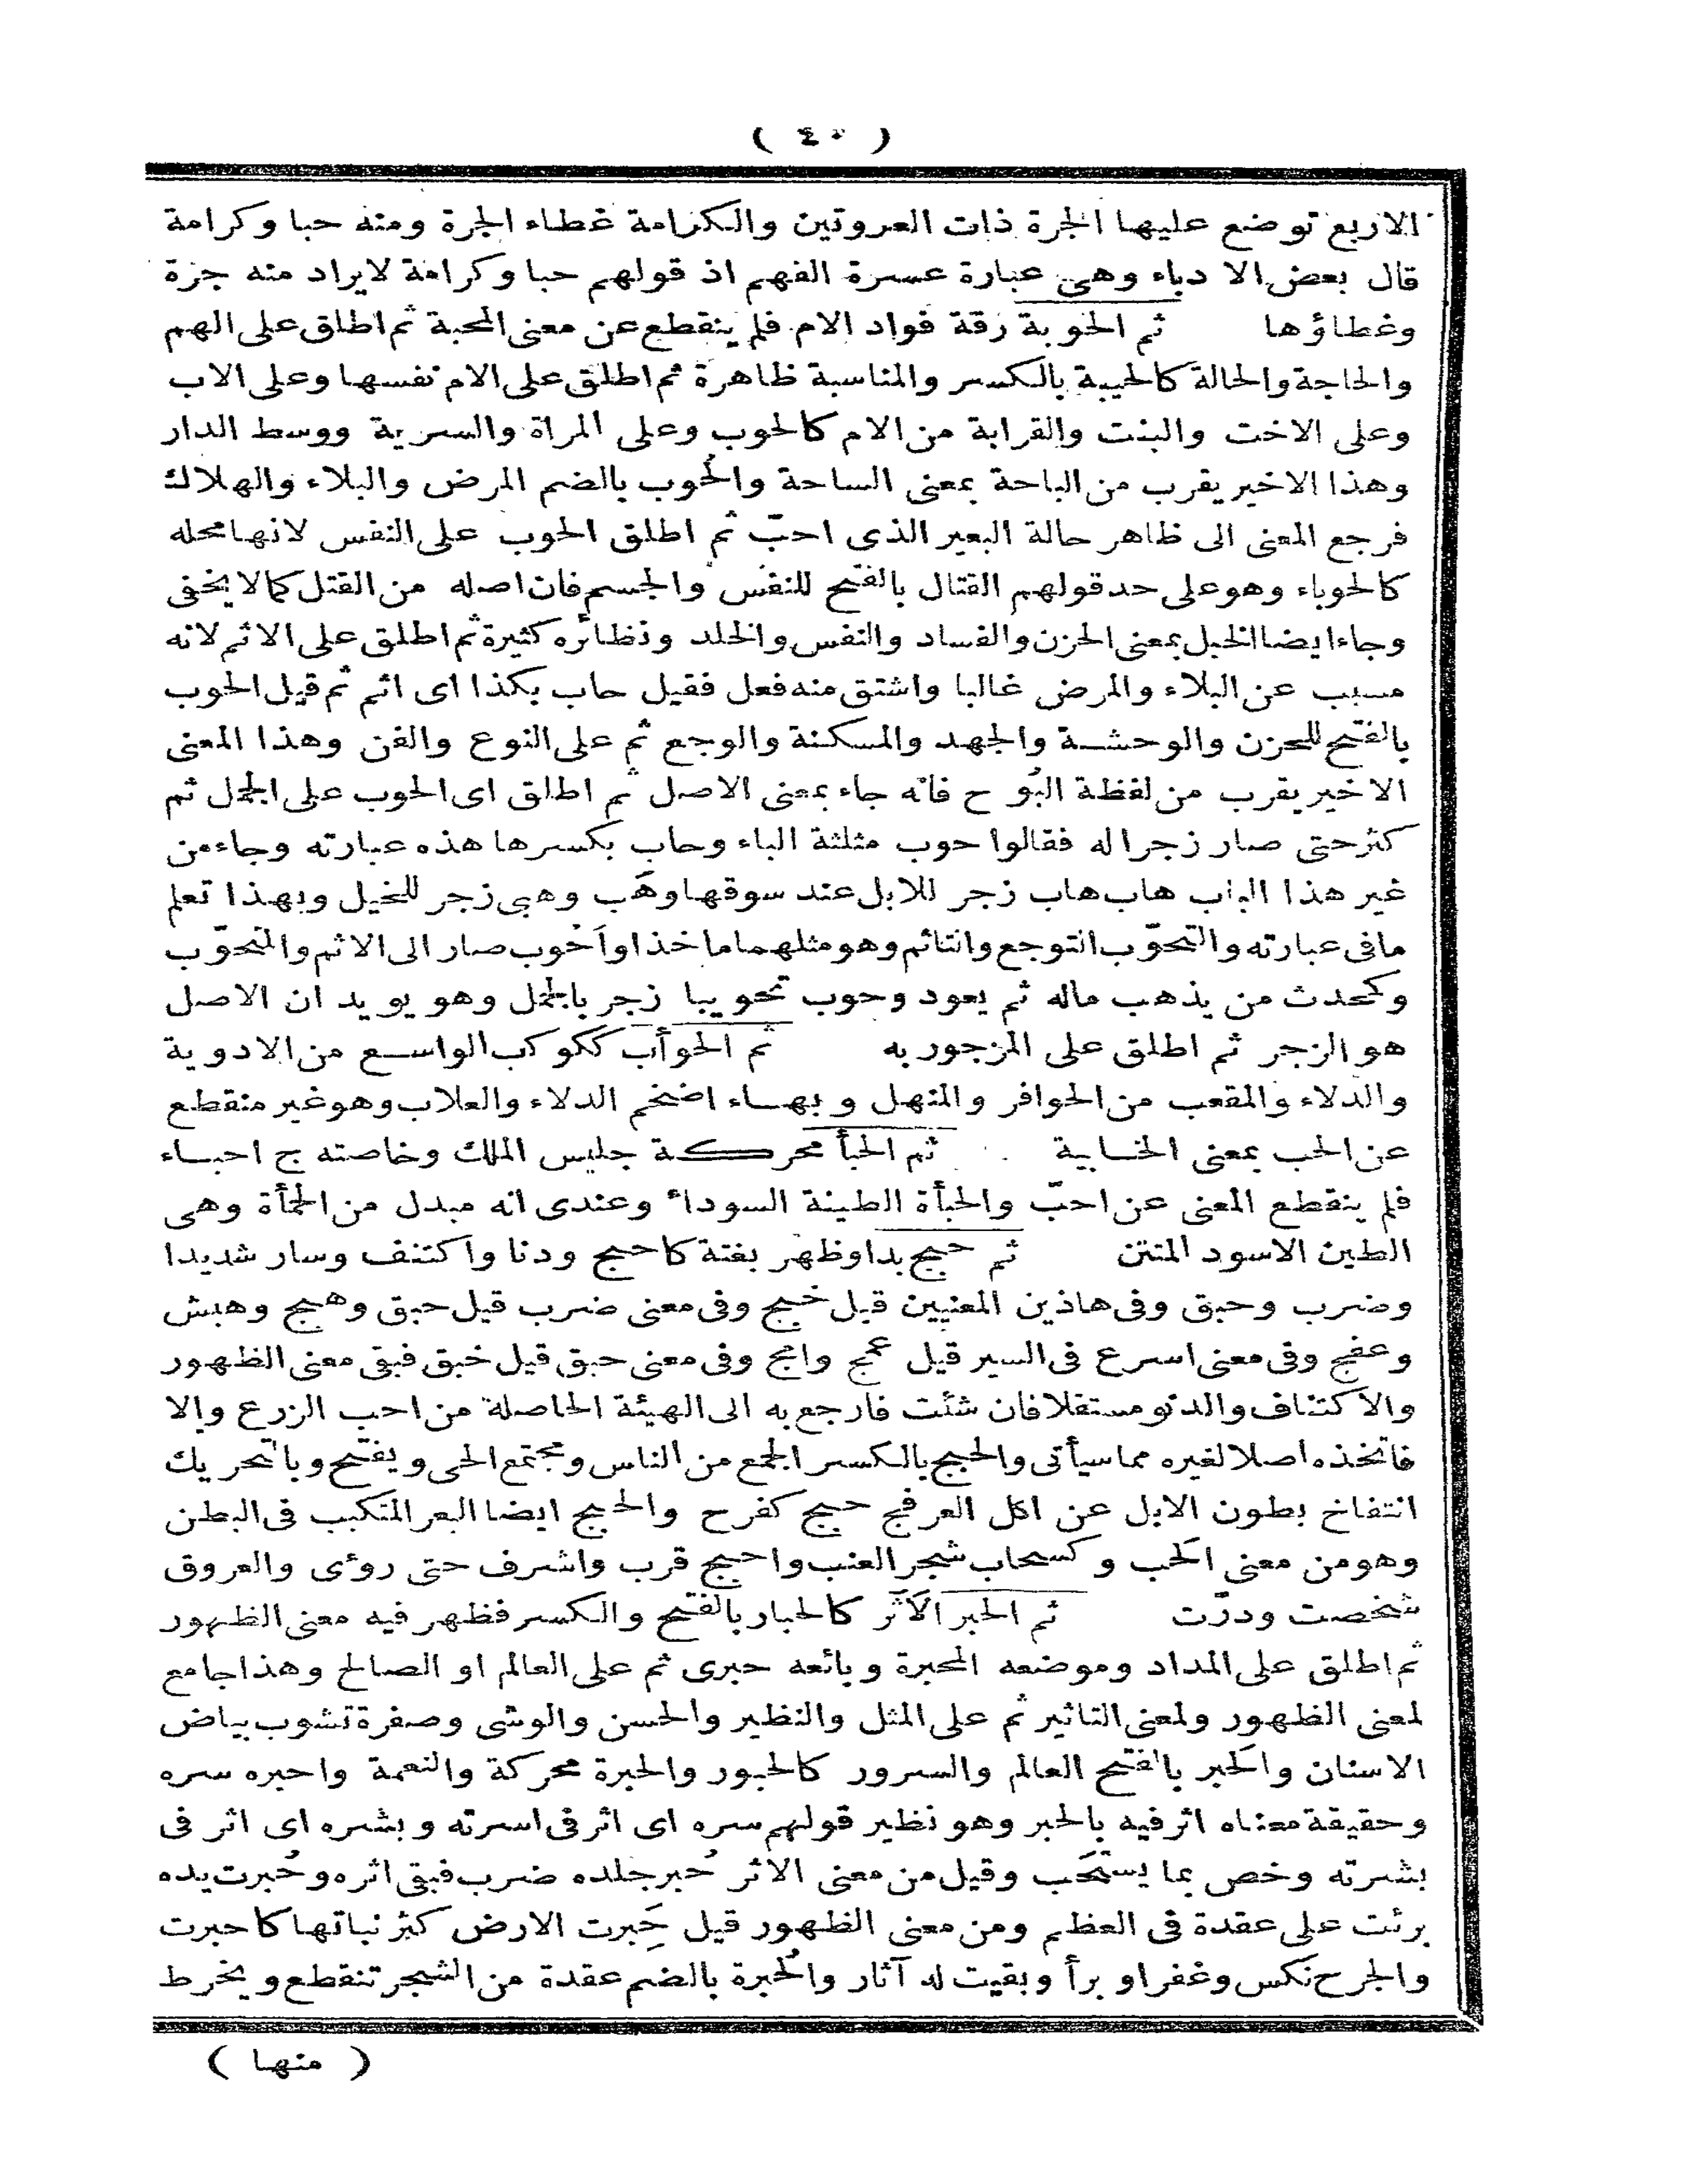 ( ٤٠ )
الاربع توضع عليها الجرة ذات العروتين والكرامة غطاء الجرة ومنه حبا وكرامة
قال بعض الادباء وهى عبارة عسرة الفهم اذ قولهم حبا وكرامة لايراد منه جرة
وغطاؤها ثم الحوبة رقة فواد الام فلم ينقطع عن معنى المحبة ثم اطلق على الهم
والحاجة والحالة كالحيبة بالكسر والمناسبة ظاهرة ثم اطلق على الام نفسها وعلى الاب
وعلى الاخت والبنت والقرابة من الام كالحوب وعلى المراة والسرية ووسط الدار
وهذا الاخير يقرب من الباحة بمعنى الساحة والحُوب بالضم المرض والبلاء والهلاك
فرجع المعنى الى ظاهر حالة البعير الذى احبّ ثم اطلق الحوب على النفس لانها محله
كالحوباء وهو على حد قولهم القتال بالفتح للنفس والجسم فان اصله من القتل كما لا يخفى
وجاء ايضا الخبل بمعنى الحزن والفساد والنفس والخلد ونظائره كثيرة ثم اطلق على الاثم لانه
مسبب عن البلاء والمرض غالبا واشتق منه فعل فقيل حاب بكذا اى اثم ثم قيل الحوب
بالفتح للحزن والوحشة والجهد والمسكنة والوجع ثم على النوع والفن وهذا المعنى
الاخير يقرب من لفظة البُوح فانه جاء بمعنى الاصل ثم اطلق اى الحوب على الجمل ثم
كثر حتى صار زجرا له فقالوا حوب مثلثة الباء وحاب بكسرها هذه عبارته وجاء من
غير هذا الباب هاب هاب زجر للابل عند سوقها وهَب وهبى زجر للخيل وبهذا تعلم
ما فى عبارته والتحوّب التوجع والتاثم وهو مثلهما ماخذا واَحْوب صار الى الاثم والمتحوّب
وكمحدث من يذهب ماله ثم يعود وحوب تحويبا زجر بالجمل وهو يويد ان الاصل
هو الزجر ثم اطلق على المزجور به ثم الحوأب ككوكب الواسع من الادوية
والدلاء والمقعب من الحوافر والمنهل وبهاء اضخم الدلاء والعلاب وهو غير منقطع
عن الحب بمعنى الخابية ثم الحبأ محركة جليس الملك وخاصته ج احباء
فلم ينقطع المعنى عن احبّ والحبأة الطينة السوداء وعندى انه مبدل من الحمأة وهى
الطين الاسود المنتن ثم حبج بدا وظهر بغتة كاحبج ودنا واكتنف وسار شديدا
وضرب وحبق وفى هاذين المعنيين قيل خبج وفى معنى ضرب قيل حبق وهبج وهبش
وعفج وفى معنى اسرع فى السير قيل عمج وامج وفى معنى حبق قيل خبق فبقى معنى الظهور
والاكتناف والدنو مستقلا فان شئت فارجع به الى الهيئة الحاصلة من احب الزرع والا
فاتخذه اصلا لغيره مما سيأتى والحبج بالكسر الجمع من الناس ومجتمع الحى ويفتح وبالتحريك
انتفاخ بطون الابل عن اكل العرفج حبج كفرح والحبج ايضا البعر المتكبب فى البطن
وهو من معنى الحَب وكسحاب شجر العنب واحبج قرب واشرف حتى روئى والعروق
شخصت ودرّت ثم الحبر الاَثَر كالحبار بالفتح والكسر فظهر فيه معنى الظهور
ثم اطلق على المداد وموضعه المحبرة وبائعه حبرى ثم على العالم او الصالح وهذا جامع
لمعنى الظهور ولمعنى التاثير ثم على المثل والنظير والحسن والوشى وصفرة تشوب بياض
الاسنان والحَبر بالفتح العالم والسرور كالحبور والحبرة محركة والنعمة واحبره سره
وحقيقة معناه اثر فيه بالحبر وهو نظير قولهم سره اى اثر فى اسرته وبشره اى اثر فى
بشرته وخص بما يستحَب وقيل من معنى الاثر حُبر جلده ضرب فبقى اثره وحُبرت يده
برئت على عقدة فى العظم ومن معنى الظهور قيل حَبِرت الارض كثر نباتها كاحبرت
والجرح نكس وغفر او برأ وبقيت له آثار والحُبرة بالضم عقدة من الشجر تنقطع ويخرط
( منها )